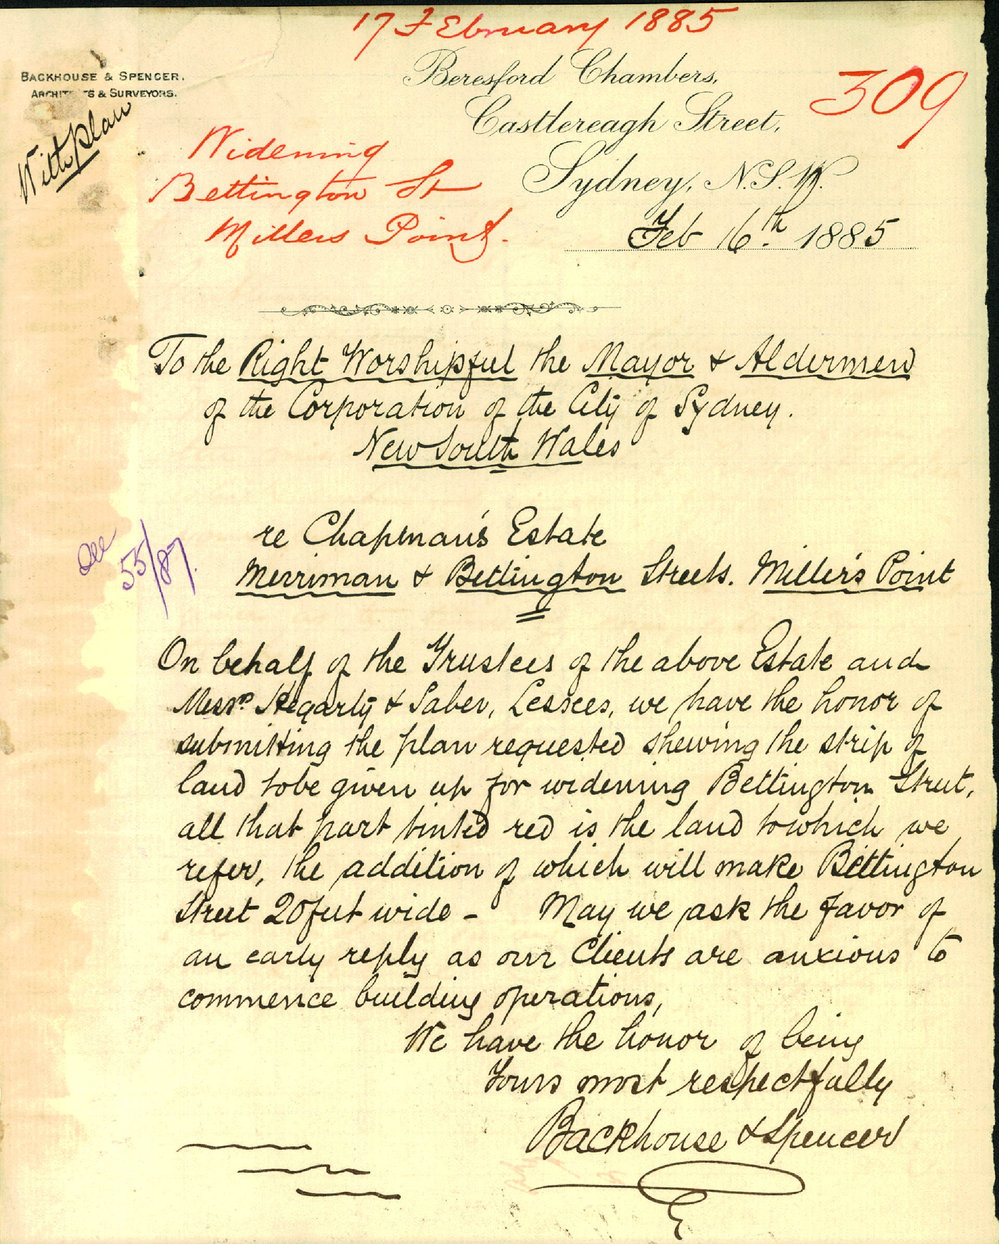 17 February 1885
BACKHOUSE & SPENCER,
ARCHITECTS & SURVEYORS.
With plan
Beresford Chambers,
Castlereagh Street,
309
Sydney, N.S.W.
Feb 16th. 1885
Widening
Bettington St
Millers Point.
To the Right Worshipful the Mayor & Aldermen
of the Corporation of the City of Sydney.
New South Wales
re Chapman's Estate
Merriman & Bettington Streets. Miller's Point
55/87.
On behalf of the Trustees of the above Estate and
Messrs. Hegarty & Saber, Lessees, we have the honor of
submitting the plan requested shewing the strip of
land to be given up for widening Bettington Street,
all that part tinted red is the land to which we
refer, the addition of which will make Bettington
Street 20 feet wide - May we ask the favor of
an early reply as our Clients are anxious to
commence building operations,
We have the honor of being
Yours most respectfully
Backhouse & Spencer